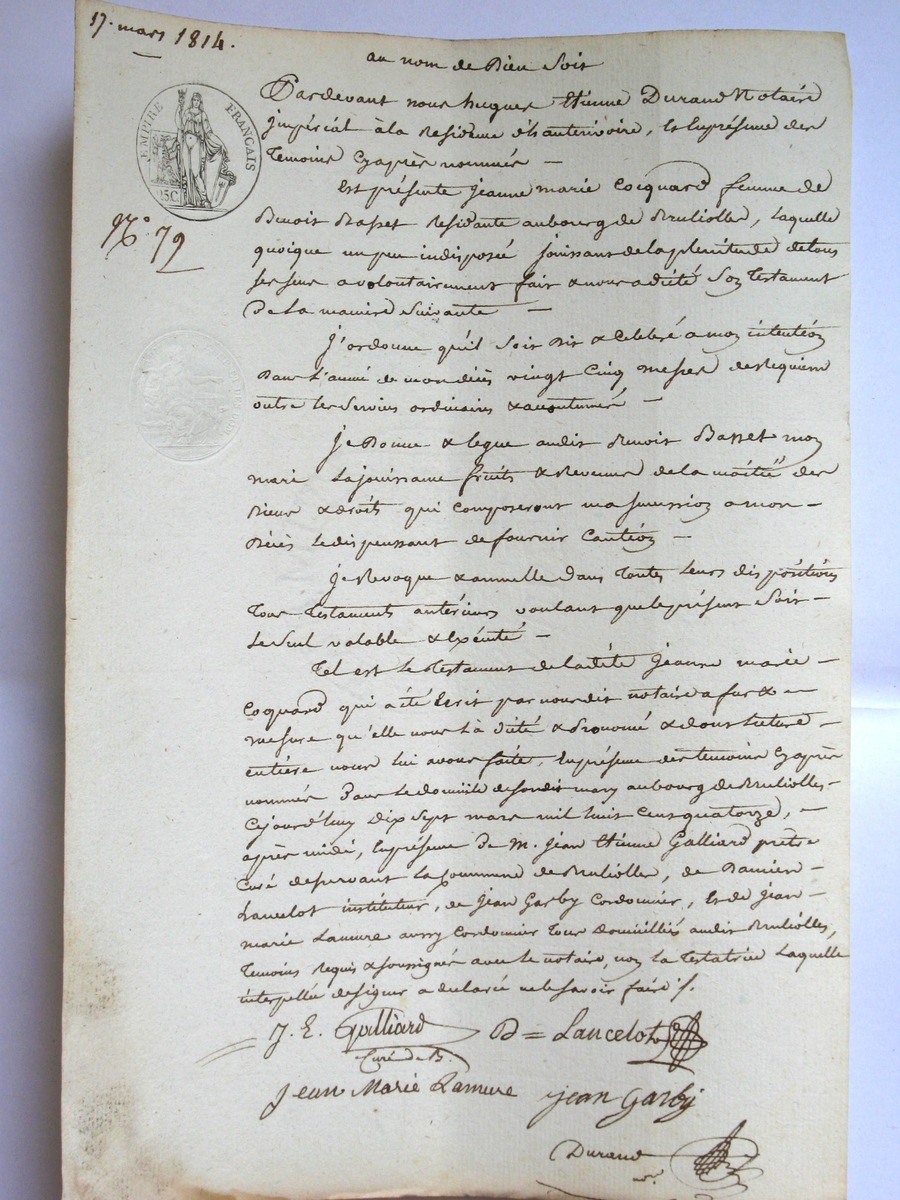 17. mars 1814.
au nom de Dieu Soit
EMPIRE FRANÇAIS
25C.
N.° 79
Pardevant nous hugues Etienne Durand Notaire
impérial à la Residence , En présence des
Temoins Cyaprès nommés —
Est présente jeanne marie Cocquard femme de
Benoit Basset Residante aubourg de Brulliolles, Laquelle
quoique un peu indisposée jouissant de la plenitude de tous
ses sens a volontairement fait & nous a dicté Son Testament
De La maniere Suivante —
J'ordonne qu'il Soit Dit & Celebré a mon intention
Dans L'année de mon décès vingt Cinq messes de Requiem
outre les Services ordinaires & acoutumés —
Je Donne & legue audit Benoit Basset mon
mari La jouissance fruits & Revenus de la moitié des
Biens & droits qui Composeront ma Succession a mon -
Décès Le dispensant de fournir Caution —
Je Revoque & annulle Dans Toutes Leurs dispositions
Tous Testaments antérieurs voulant que le présent Soit -
Le Seul valable & Exécuté —
Tel est Le Testament de la dite Jeanne marie -
Cocquard qui a été Ecrit par nous dit notaire a fur & -
mesure qu'elle nous L'a dicté & prononcé & dont lecture -
entière nous lui avons faite, En présence des temoins Cyaprès
nommés Dans Le domicile de sondit mary au bourg de Brulliolles -
Cejourd'huy dix Sept mars mil huit Cent quatorze, -
après midi, En présence De M. Jean Etienne Galliard prêtre
Curé desservant La Commune de Brulliolles, de Damien -
Lancelot instituteur, de Jean Garby Cordonnier, Et de Jean -
marie Lamure aussy Cordonnier Tous domiciliés audit Brulliolles,
Temoins Requis & soussignés avec Le notaire, non La Testatrice Laquelle
interpellée de signer a declaré ne le savoir faire ./.
J. E. Galliard D = Lancelot
Curé de B.
Jean Marie Lamure jean Garby
Durand